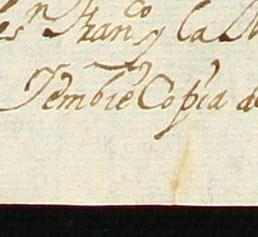 Fran^co y la
Tembre Copia de